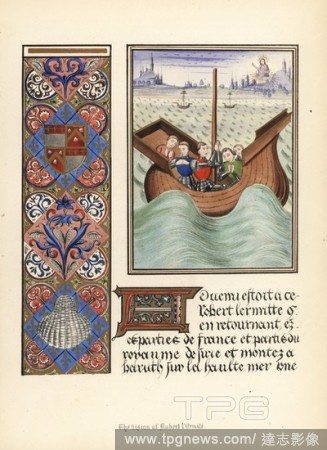 Duemi estort a ce
Robert lermitte q̃
en retournant es
es parties de france et parties du
royaume de surie et montez a
baruth sur la haulte mer one
The vision of Robert l'Ermite
TPG
www.tpgnews.com/達志影像